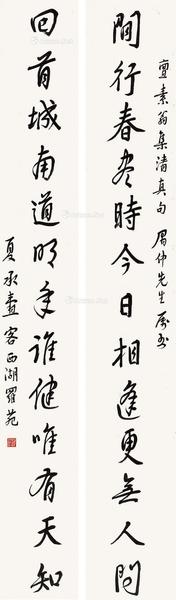 亶素翁集清真句 眉仲先生属書
閒行春尽時今日相逢更無人問
回首城南道明年誰健唯有天知
夏承燾客西湖羅苑